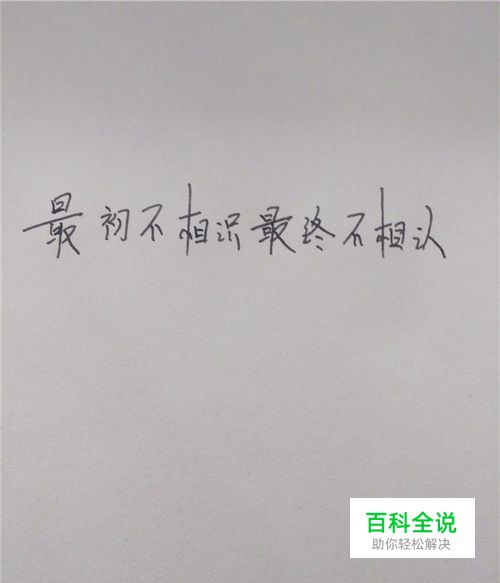 最初不相识最终不相认
百科全说
助你轻松解决